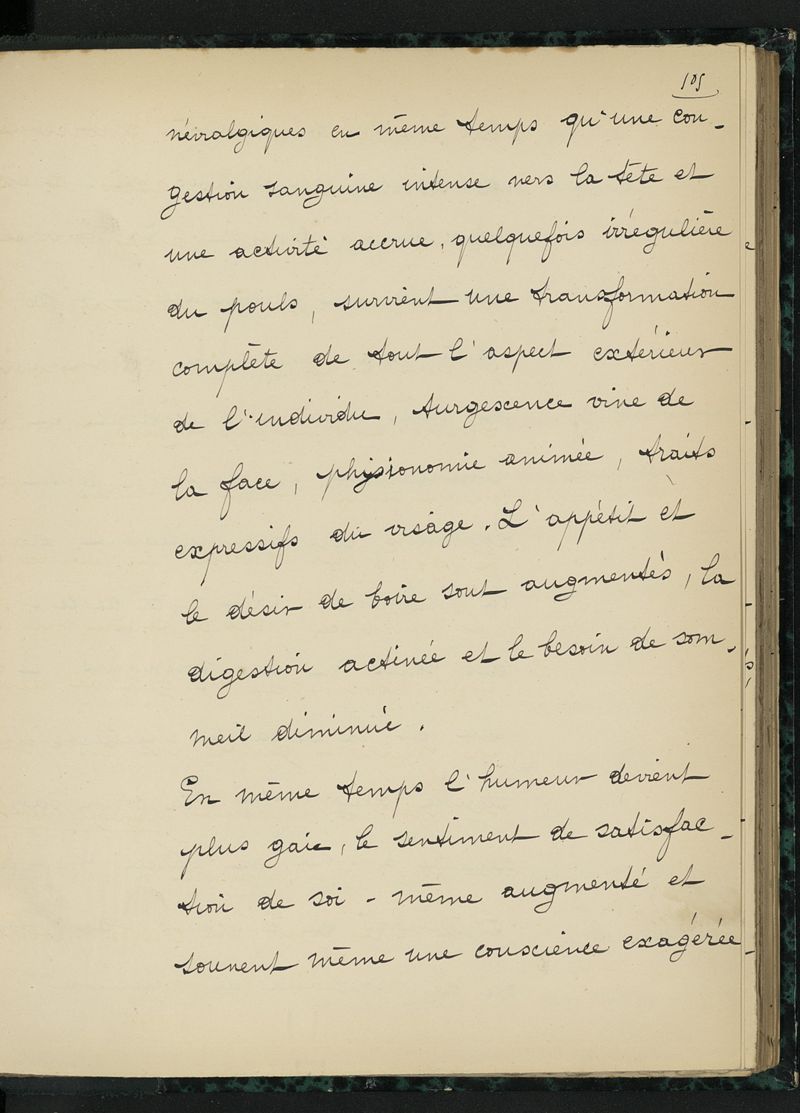 105
névralgiques en même temps qu'une con-
gestion sanguine intense vers la tête et
une activité accrue, quelquefois irrégulière
du pouls, survient une transformation
complète de tout l'aspect extérieur
de l'individu, turgescence vive de
la face, physionomie animée, traits
expressifs du visage. L'appétit et
le désir de boire sont augmentés, la
digestion activée et le besoin de som-
meil diminué.
En même temps l'humeur devient
plus gaie, le sentiment de satisfac-
tion de soi-même augmenté et
souvent même une conscience exagérée